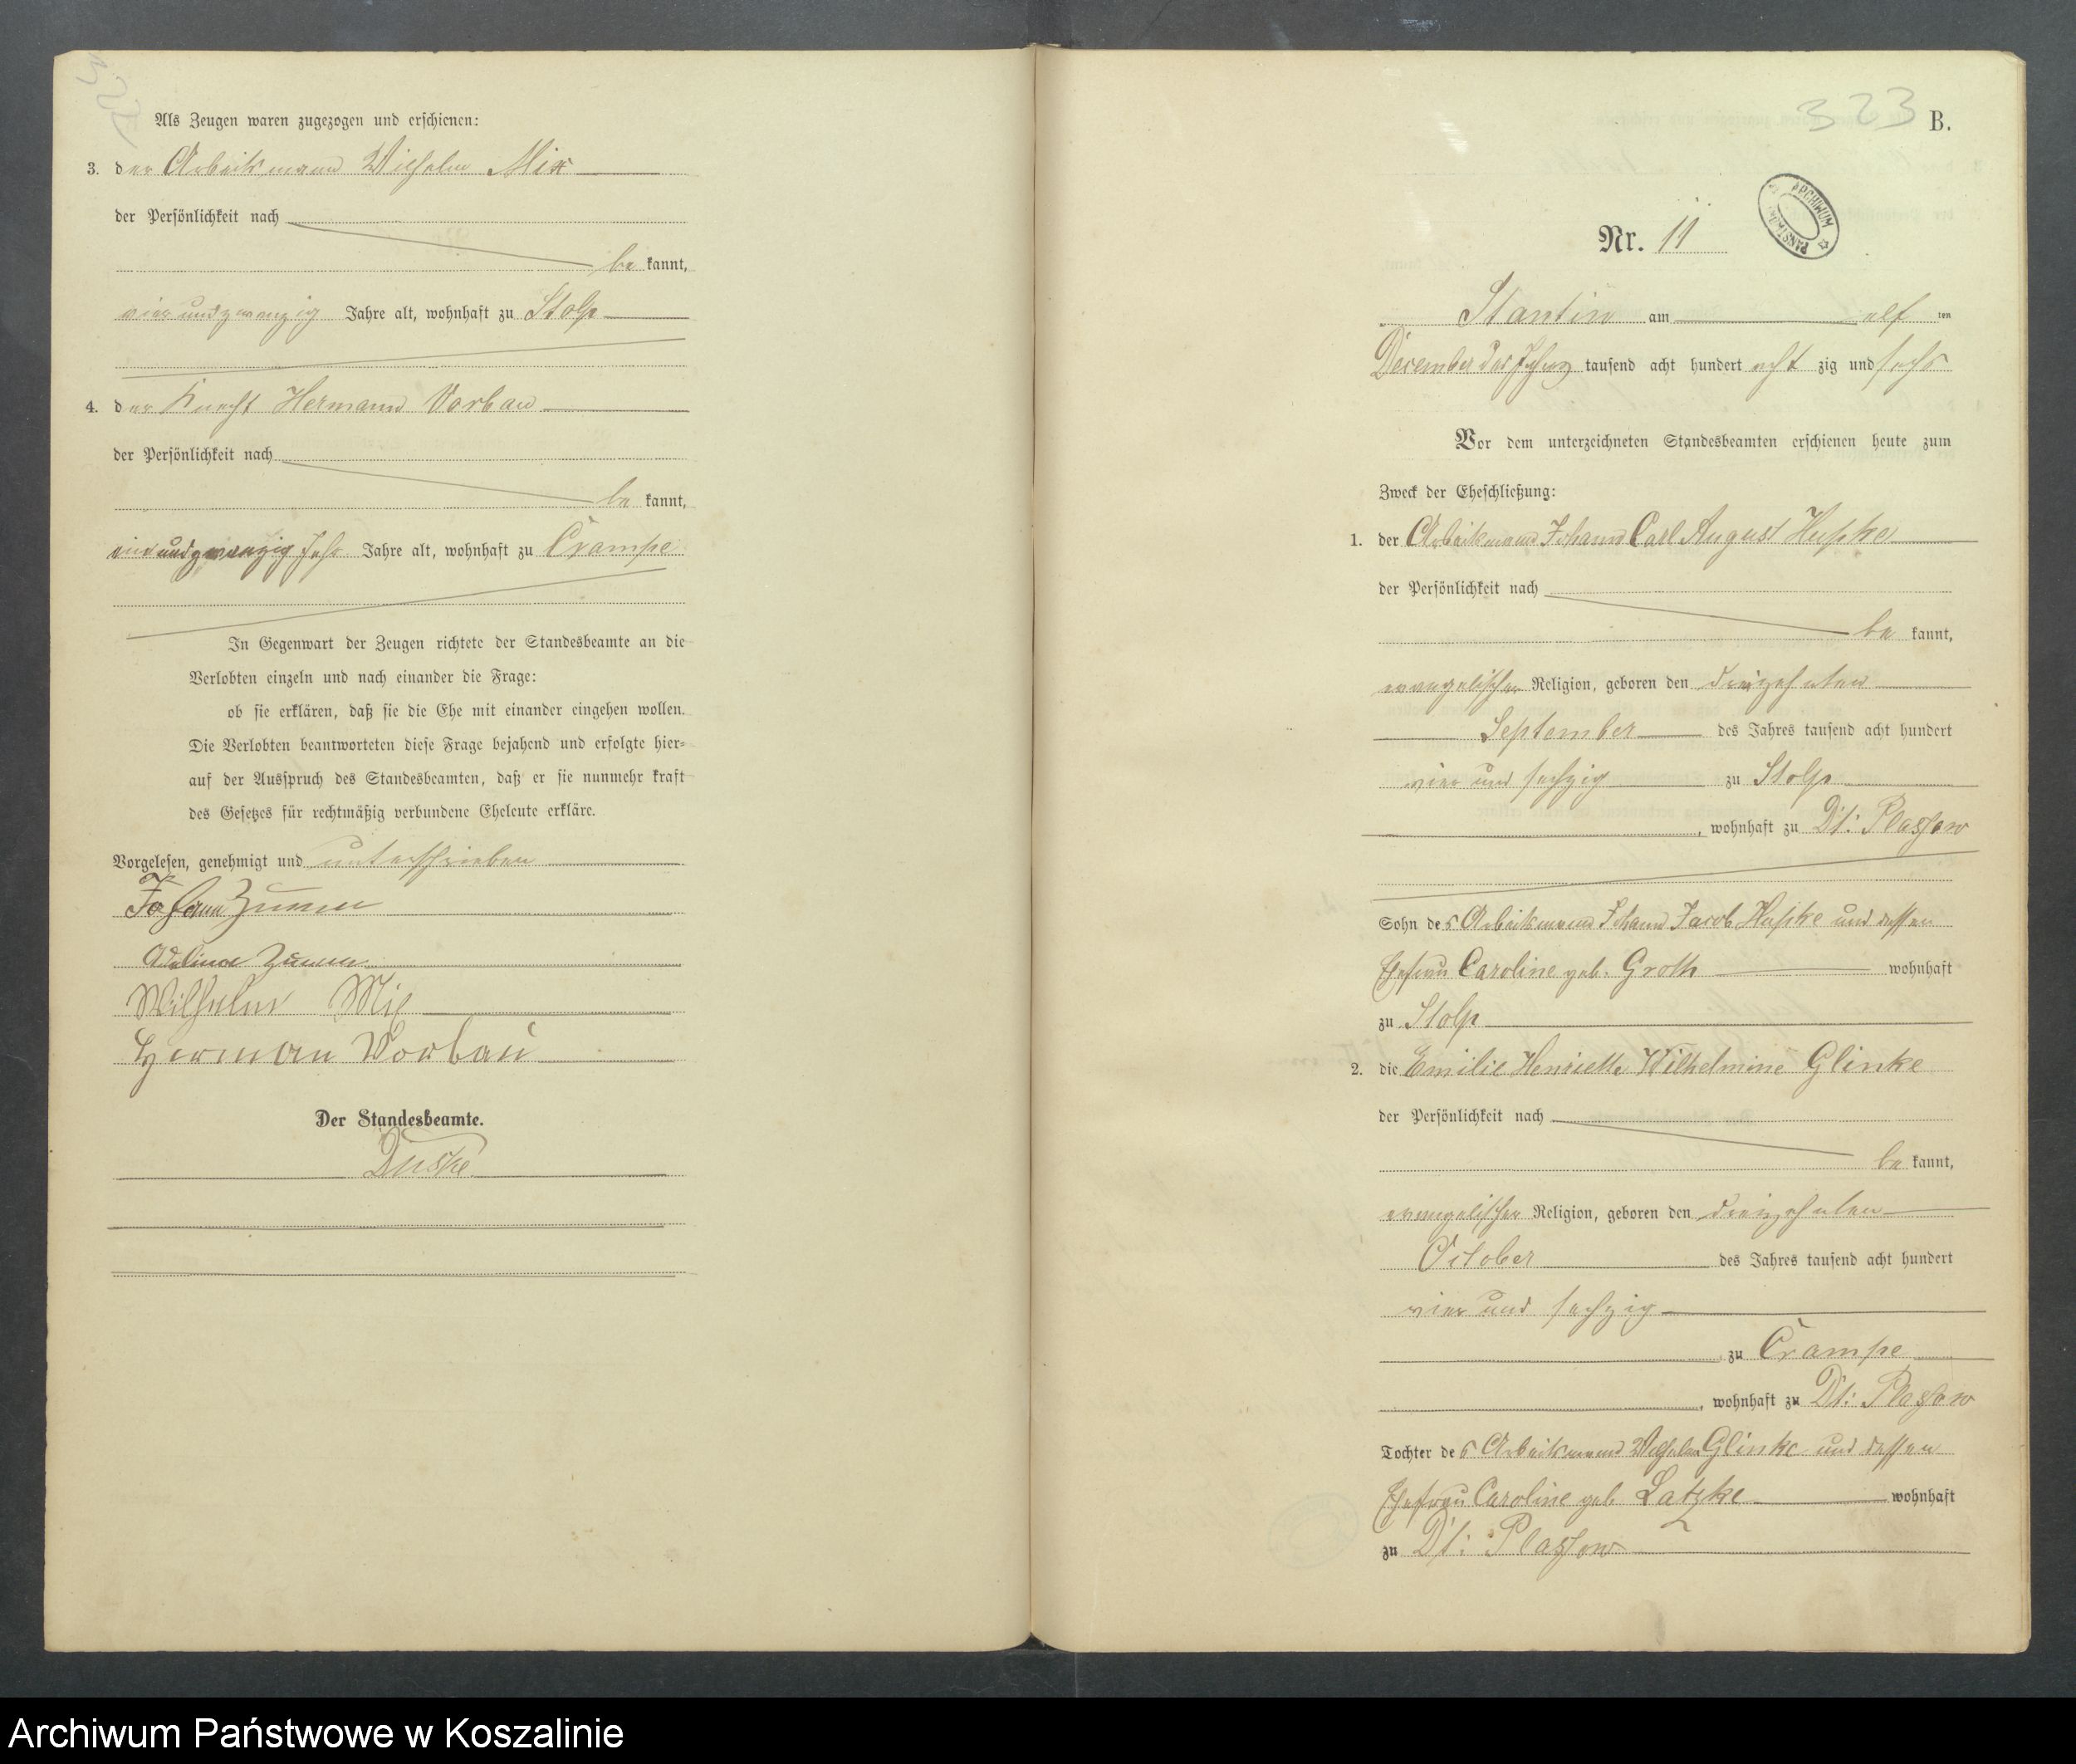 Als Zeugen waren zugezogen und erschienen:
3. der Arbeitsmann Wilhelm Mix
der Persönlichkeit nach
be kannt,
vierundzwanzig Jahre alt, wohnhaft zu Stolp
4. der Knecht Hermann Vorbau
der Persönlichkeit nach
be kannt,
einundzwanzig Jahr Jahre alt, wohnhaft zu Crampe
In Gegenwart der Zeugen richtete der Standesbeamte an die
Verlobten einzeln und nach einander die Frage:
ob sie erklären, daß sie die Ehe mit einander eingehen wollen.
Die Verlobten beantworteten diese Frage bejahend und erfolgte hier-
auf der Ausspruch des Standesbeamten, daß er sie nunmehr kraft
des Gesetzes für rechtmäßig verbundene Eheleute erkläre.
Vorgelesen, genehmigt und unterschrieben
Johann Zumm
Zumm
Wilhelm Mix
Herman Vorbau
Der Standesbeamte.
Duske
323 B.
ARCHIWUM
Nr. 11
Stantin am elf ten
December des Jahres tausend acht hundert acht zig und sechs
Vor dem unterzeichneten Standesbeamten erschienen heute zum
Zweck der Eheschließung:
1. der Arbeitsmann Johann Carl August Hupke
der Persönlichkeit nach
be kannt,
evangelischer Religion, geboren den dreizehnten
September des Jahres tausend acht hundert
vier und sechzig zu Stolp
, wohnhaft zu Dt: Plassow
Sohn des Arbeitsmann Johann Jacob Hupke und dessen
Ehefrau Caroline geb. Groth wohnhaft
zu Stolp
2. die Emilie Henriette Wilhelmine Glinke
der Persönlichkeit nach
be kannt,
evangelischer Religion, geboren den dreizehnten
October des Jahres tausend acht hundert
vier und sechzig
, zu Crampe
, wohnhaft zu Dt: Plassow
Tochter des Arbeitsmann Wilhelm Glinke und dessen
Ehefrau Caroline geb. Latzke wohnhaft
zu Dt: Plassow
Archiwum Państwowe w Koszalinie